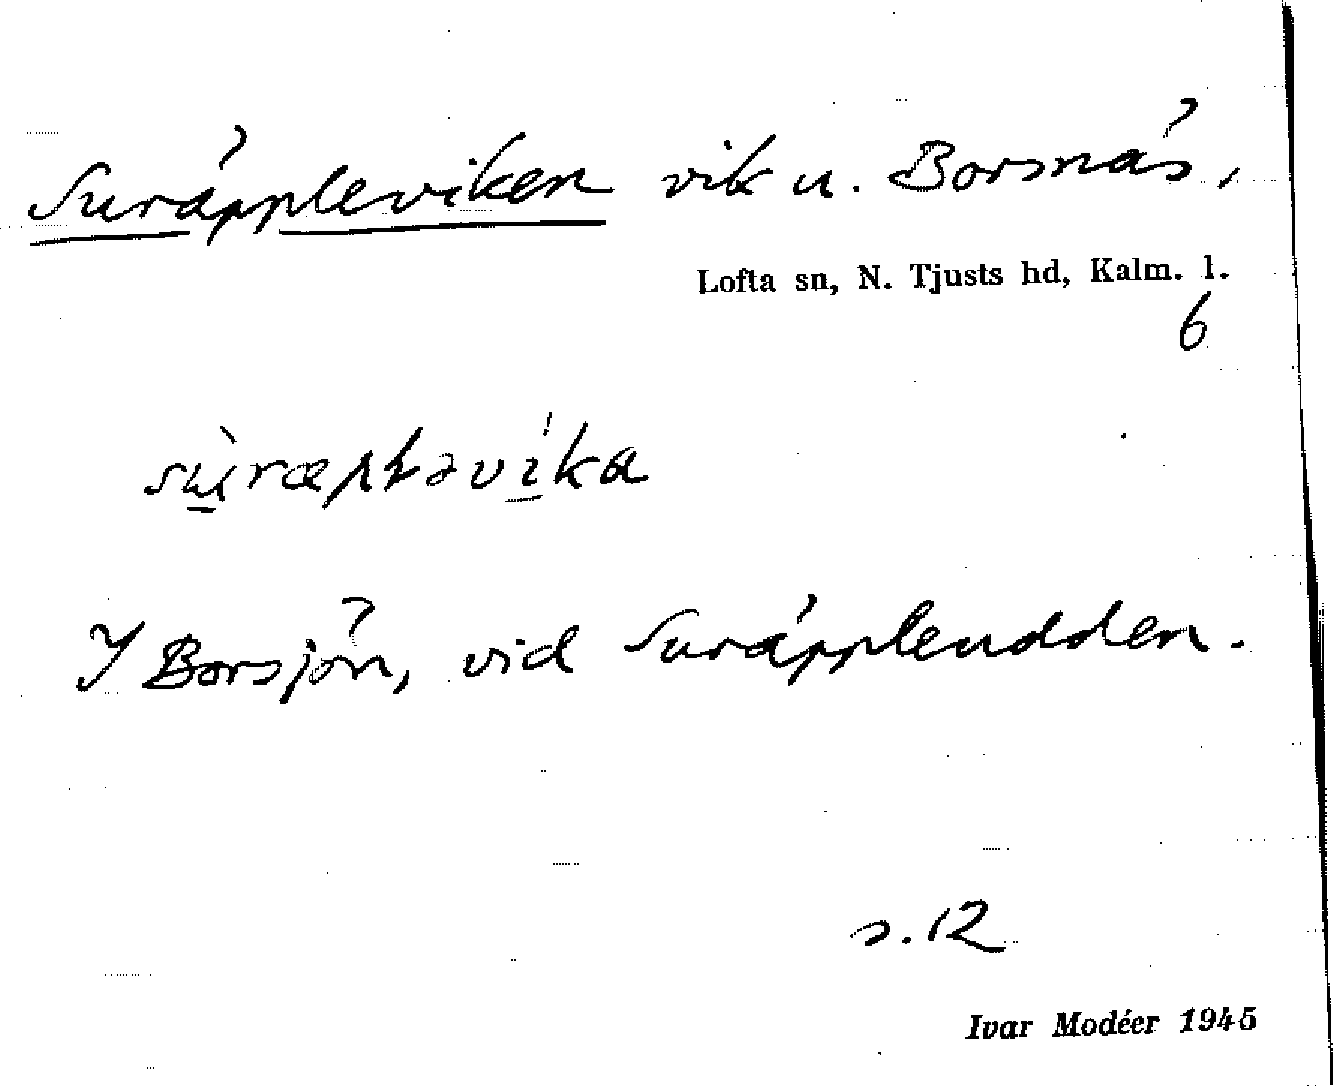 Suräppleviken vik u. Borsnäs,
Lofta sn, N. Tjusts hd, Kalm. l.
6
I Borsjön, vid Suräppleudden.
s. 12
Ivar Modéer 1945